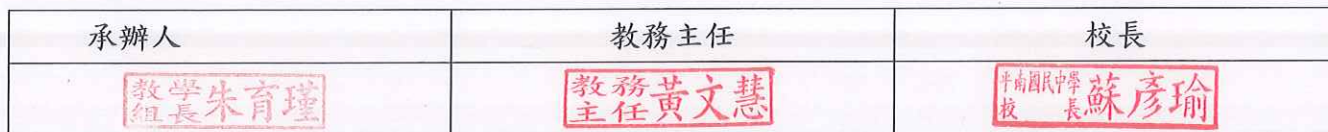 承辦人 教務主任 校長
教學組長朱育瑾 教務主任黃文慧 平南國民中學校長蘇彥瑜